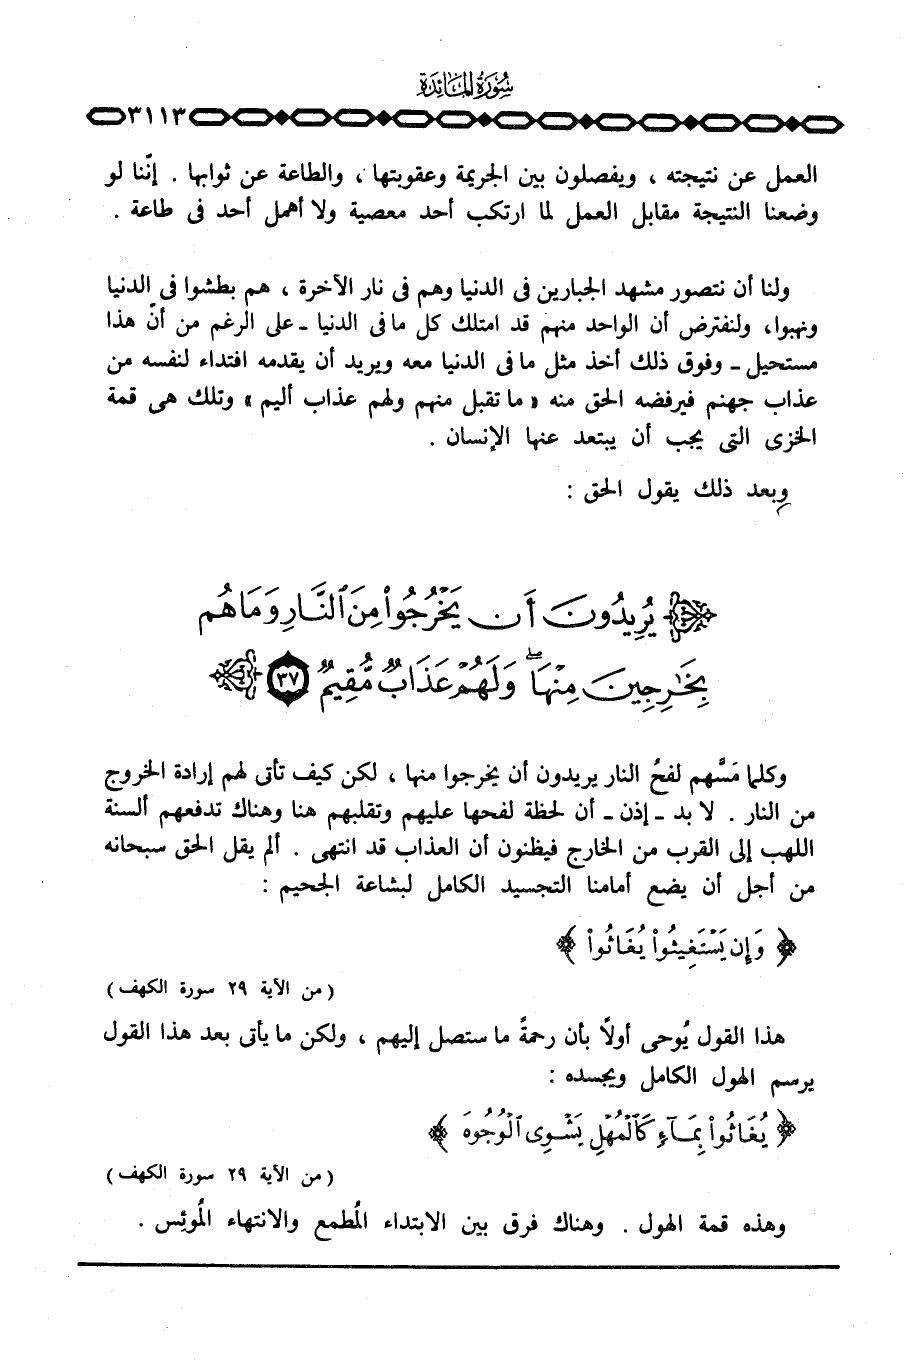 سُورَةُ المَائِدَة
٣١١٣
العمل عن نتيجته ، ويفصلون بين الجريمة وعقوبتها ، والطاعة عن ثوابها . إنّنا لو
وضعنا النتيجة مقابل العمل لما ارتكب أحد معصية ولا أهمل أحد فى طاعة .
ولنا أن نتصور مشهد الجبارين فى الدنيا وهم فى نار الآخرة ، هم بطشوا فى الدنيا
ونهبوا، ولنفترض أن الواحد منهم قد امتلك كل ما فى الدنيا ـ على الرغم من أنّ هذا
مستحيل ـ وفوق ذلك أخذ مثل ما فى الدنيا معه ويريد أن يقدمه افتداء لنفسه من
عذاب جهنم فيرفضه الحق منه « ما تقبل منهم ولهم عذاب أليم » وتلك هى قمة
الخزى التى يجب أن يبتعد عنها الإنسان .
وبعد ذلك يقول الحق :
﴿ يُرِيدُونَ أَن يَخْرُجُوا۟ مِنَ ٱلنَّارِ وَمَا هُم
بِخَـٰرِجِينَ مِنْهَا ۖ وَلَهُمْ عَذَابٌ مُّقِيمٌ ٣٧ ﴾
وكلما مَسَّهم لفحُ النار يريدون أن يخرجوا منها ، لكن كيف تأتى لهم إرادة الخروج
من النار . لا بد ـ إذن ـ أن لحظة لفحها عليهم وتقلبهم هنا وهناك تدفعهم ألسنة
اللهب إلى القرب من الخارج فيظنون أن العذاب قد انتهى . ألم يقل الحق سبحانه
من أجل أن يضع أمامنا التجسيد الكامل لبشاعة الجحيم :
﴿ وَإِن يَسْتَغِيثُوا۟ يُغَاثُوا۟ ﴾
( من الآية ٢٩ سورة الكهف )
هذا القول يُوحى أولاً بأن رحمةً ما ستصل إليهم ، ولكن ما يأتى بعد هذا القول
يرسم الهول الكامل ويجسده :
﴿ يُغَاثُوا۟ بِمَآءٍ كَٱلْمُهْلِ يَشْوِى ٱلْوُجُوهَ ﴾
( من الآية ٢٩ سورة الكهف )
وهذه قمة الهول . وهناك فرق بين الابتداء المُطمع والانتهاء المُوئِس .